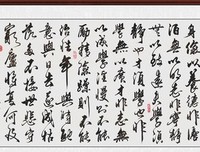 身儉以養德非澹
泊無以明志非寧靜
無以致遠夫學須
靜也才須學也非
學無以廣才非志無
以成學慢則不能
勵精險躁則不能
治性年與時馳
意與日去遂成枯
落多不接世悲守
窮廬將復何及